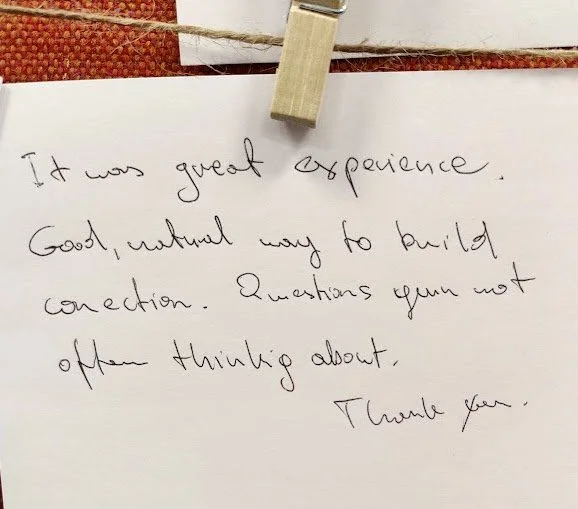 It was great experience.
Good, natural way to build
conection. Questions your not
often thinkig about.
Thank you.